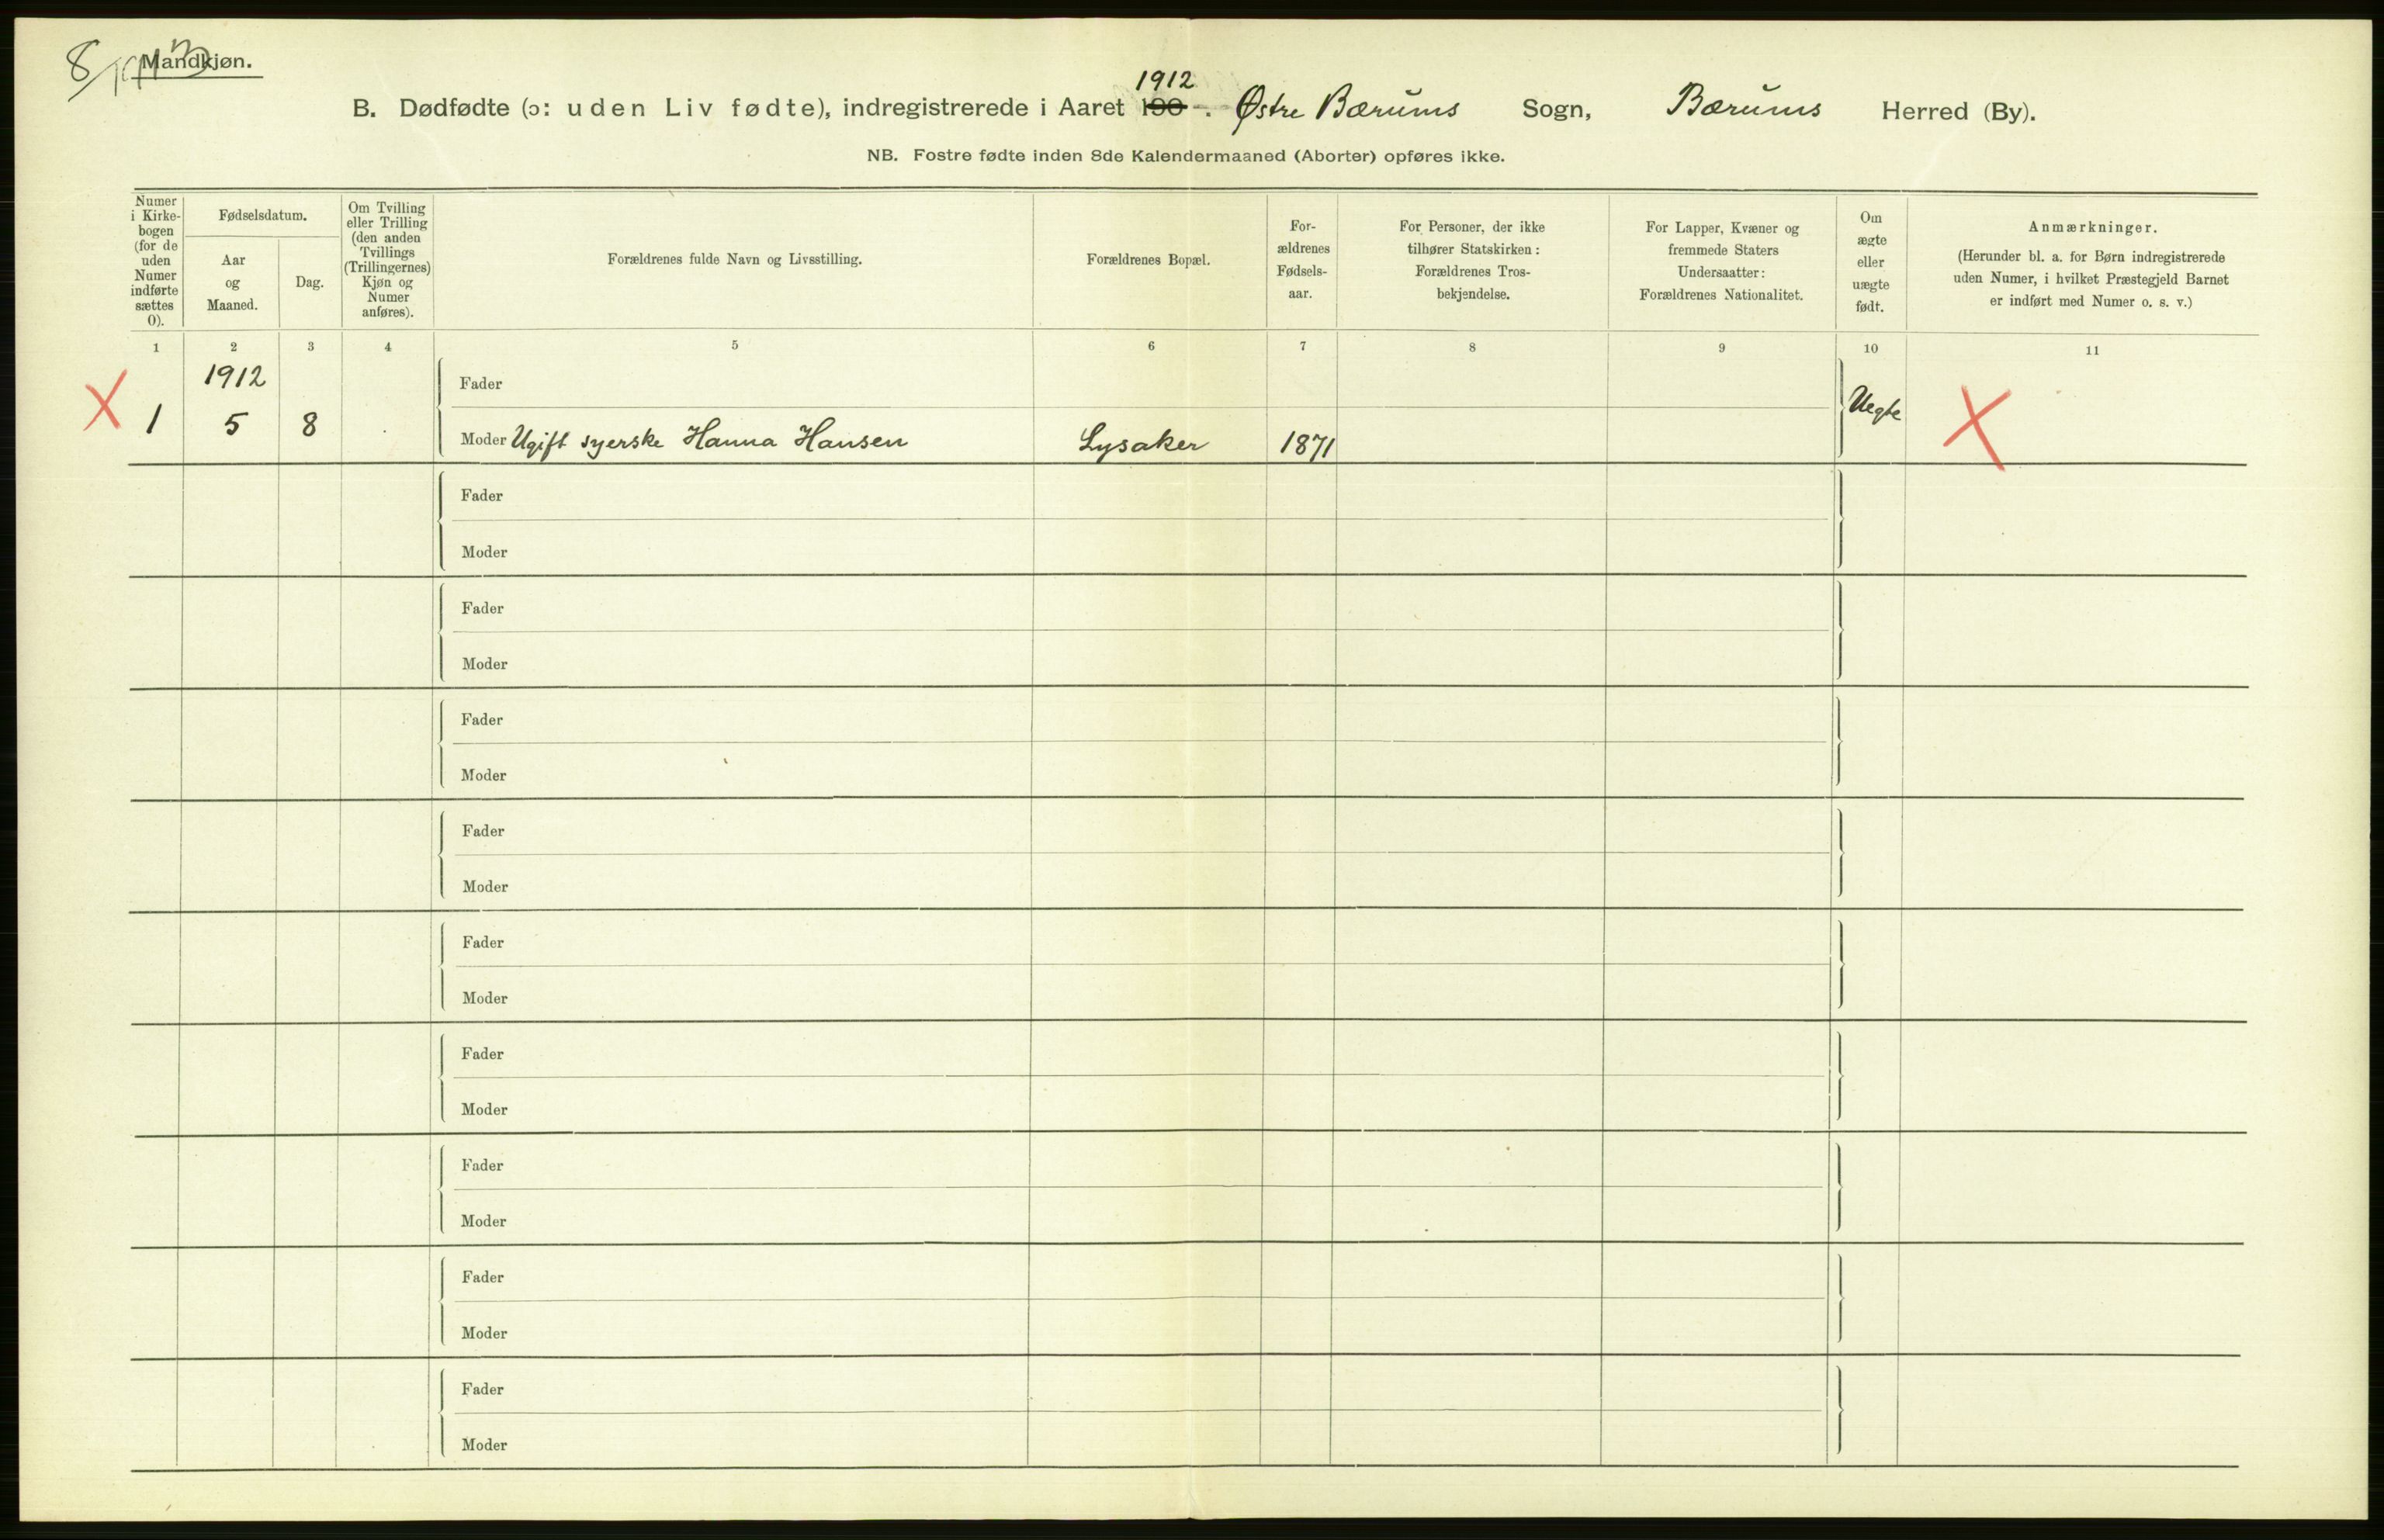 8/
Mandkjøn.
1912
B. Dødfødte (ɔ: uden Liv fødte), indregistrerede i Aaret 190 . Østre Bærums Sogn, Bærums Herred (By).
NB. Fostre fødte inden 8de Kalendermaaned (Aborter) opføres ikke.
Numer
i Kirke-
bogen
(for de
uden
Numer
indførte
sættes
0).
Fødselsdatum.
Aar
og
Maaned.
Dag.
Om Tvilling
eller Trilling
(den anden
Tvillings
(Trillingernes)
Kjøn og
Numer
anføres).
Forældrenes fulde Navn og Livsstilling.
Forældrenes Bopæl.
For-
ældrenes
Fødsels-
aar.
For Personer, der ikke
tilhører Statskirken:
Forældrenes Tros-
bekjendelse.
For Lapper, Kvæner og
fremmede Staters
Undersaatter:
Forældrenes Nationalitet.
Om
ægte
eller
uægte
født.
Anmærkninger.
(Herunder bl. a. for Børn indregistrerede
uden Numer, i hvilket Præstegjeld Barnet
er indført med Numer o. s. v.)
1 2 3 4 5 6 7 8 9 10 11
1912
Fader
Uegte
X 1 5 8 Moder Ugift syerske Hanna Hansen Lysaker 1871 X
Fader
Moder
Fader
Moder
Fader
Moder
Fader
Moder
Fader
Moder
Fader
Moder
Fader
Moder
Fader
Moder
Fader
Moder